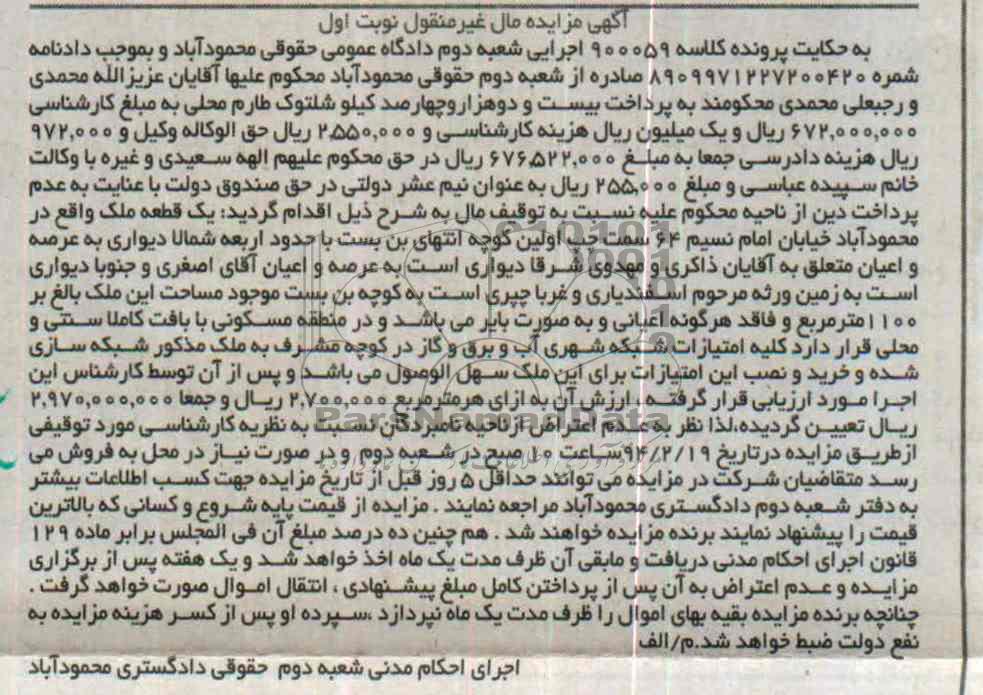 آگهی مزایده مال غیرمنقول نوبت اول
به حکایت پرونده کلاسه ۹۰۰۰۵۹ اجرایی شعبه دوم دادگاه عمومی حقوقی محمودآباد و بموجب دادنامه
شمره ۸۹۰۹۹۷۱۲۲۷۲۰۰۴۲۰ صادره از شعبه دوم حقوقی محمودآباد محکوم علیها آقایان عزیزالله محمدی
و رجبعلی محمدی محکومند به پرداخت بیست و دوهزاروچهارصد کیلو شلتوک طارم محلی به مبلغ کارشناسی
۶۷۲,۰۰۰,۰۰۰ ریال و یک میلیون ریال هزینه کارشناسی و ۲,۵۵۰,۰۰۰ ریال حق الوکاله وکیل و ۹۷۲,۰۰۰
ریال هزینه دادرسی جمعا به مبلغ ۶۷۶,۵۲۲,۰۰۰ ریال در حق محکوم علیهم الهه سعیدی و غیره با وکالت
خانم سپیده عباسی و مبلغ ۲۵۵,۰۰۰ ریال به عنوان نیم عشر دولتی در حق صندوق دولت با عنایت به عدم
پرداخت دین از ناحیه محکوم علیه نسبت به توقیف مال به شرح ذیل اقدام گردید: یک قطعه ملک واقع در
محمودآباد خیابان امام نسیم ۶۴ سمت چپ اولین کوچه انتهای بن بست با حدود اربعه شمالا دیواری به عرصه
و اعیان متعلق به آقایان ذاکری و مهدوی شرقا دیواری است به عرصه و اعیان آقای اصغری و جنوبا دیواری
است به زمین ورثه مرحوم اسفندیاری و غربا چپری است به کوچه بن بست موجود مساحت این ملک بالغ بر
۱۱۰۰مترمربع و فاقد هرگونه اعیانی و به صورت بایر می باشد و در منطقه مسکونی با بافت کاملا سنتی و
محلی قرار دارد کلیه امتیازات شبکه شهری آب و برق و گاز در کوچه مشرف به ملک مذکور شبکه سازی
شده و خرید و نصب این امتیازات برای این ملک سهل الوصول می باشد و پس از آن توسط کارشناس این
اجرا مورد ارزیابی قرار گرفته، ارزش آن به ازای هرمترمربع ۲,۷۰۰,۰۰۰ ریال و جمعا ۲,۹۷۰,۰۰۰,۰۰۰
ریال تعیین گردیده،لذا نظر به عدم اعتراض ازناحیه نامبردگان نسبت به نظریه کارشناسی مورد توقیفی
ازطریق مزایده درتاریخ ۹۴/۲/۱۹ساعت ۱۰ صبح در شعبه دوم و در صورت نیاز در محل به فروش می
رسد متقاضیان شرکت در مزایده می توانند حداقل ۵ روز قبل از تاریخ مزایده جهت کسب اطلاعات بیشتر
به دفتر شعبه دوم دادگستری محمودآباد مراجعه نمایند . مزایده از قیمت پایه شروع و کسانی که بالاترین
قیمت را پیشنهاد نمایند برنده مزایده خواهند شد . هم چنین ده درصد مبلغ آن فی المجلس برابر ماده ۱۲۹
قانون اجرای احکام مدنی دریافت و مابقی آن ظرف مدت یک ماه اخذ خواهد شد و یک هفته پس از برگزاری
مزایده و عدم اعتراض به آن پس از پرداختن کامل مبلغ پیشنهادی ، انتقال اموال صورت خواهد گرفت .
چنانچه برنده مزایده بقیه بهای اموال را ظرف مدت یک ماه نپردازد ،سپرده او پس از کسر هزینه مزایده به
نفع دولت ضبط خواهد شد.م/الف
اجرای احکام مدنی شعبه دوم حقوقی دادگستری محمودآباد
ParsNamadData